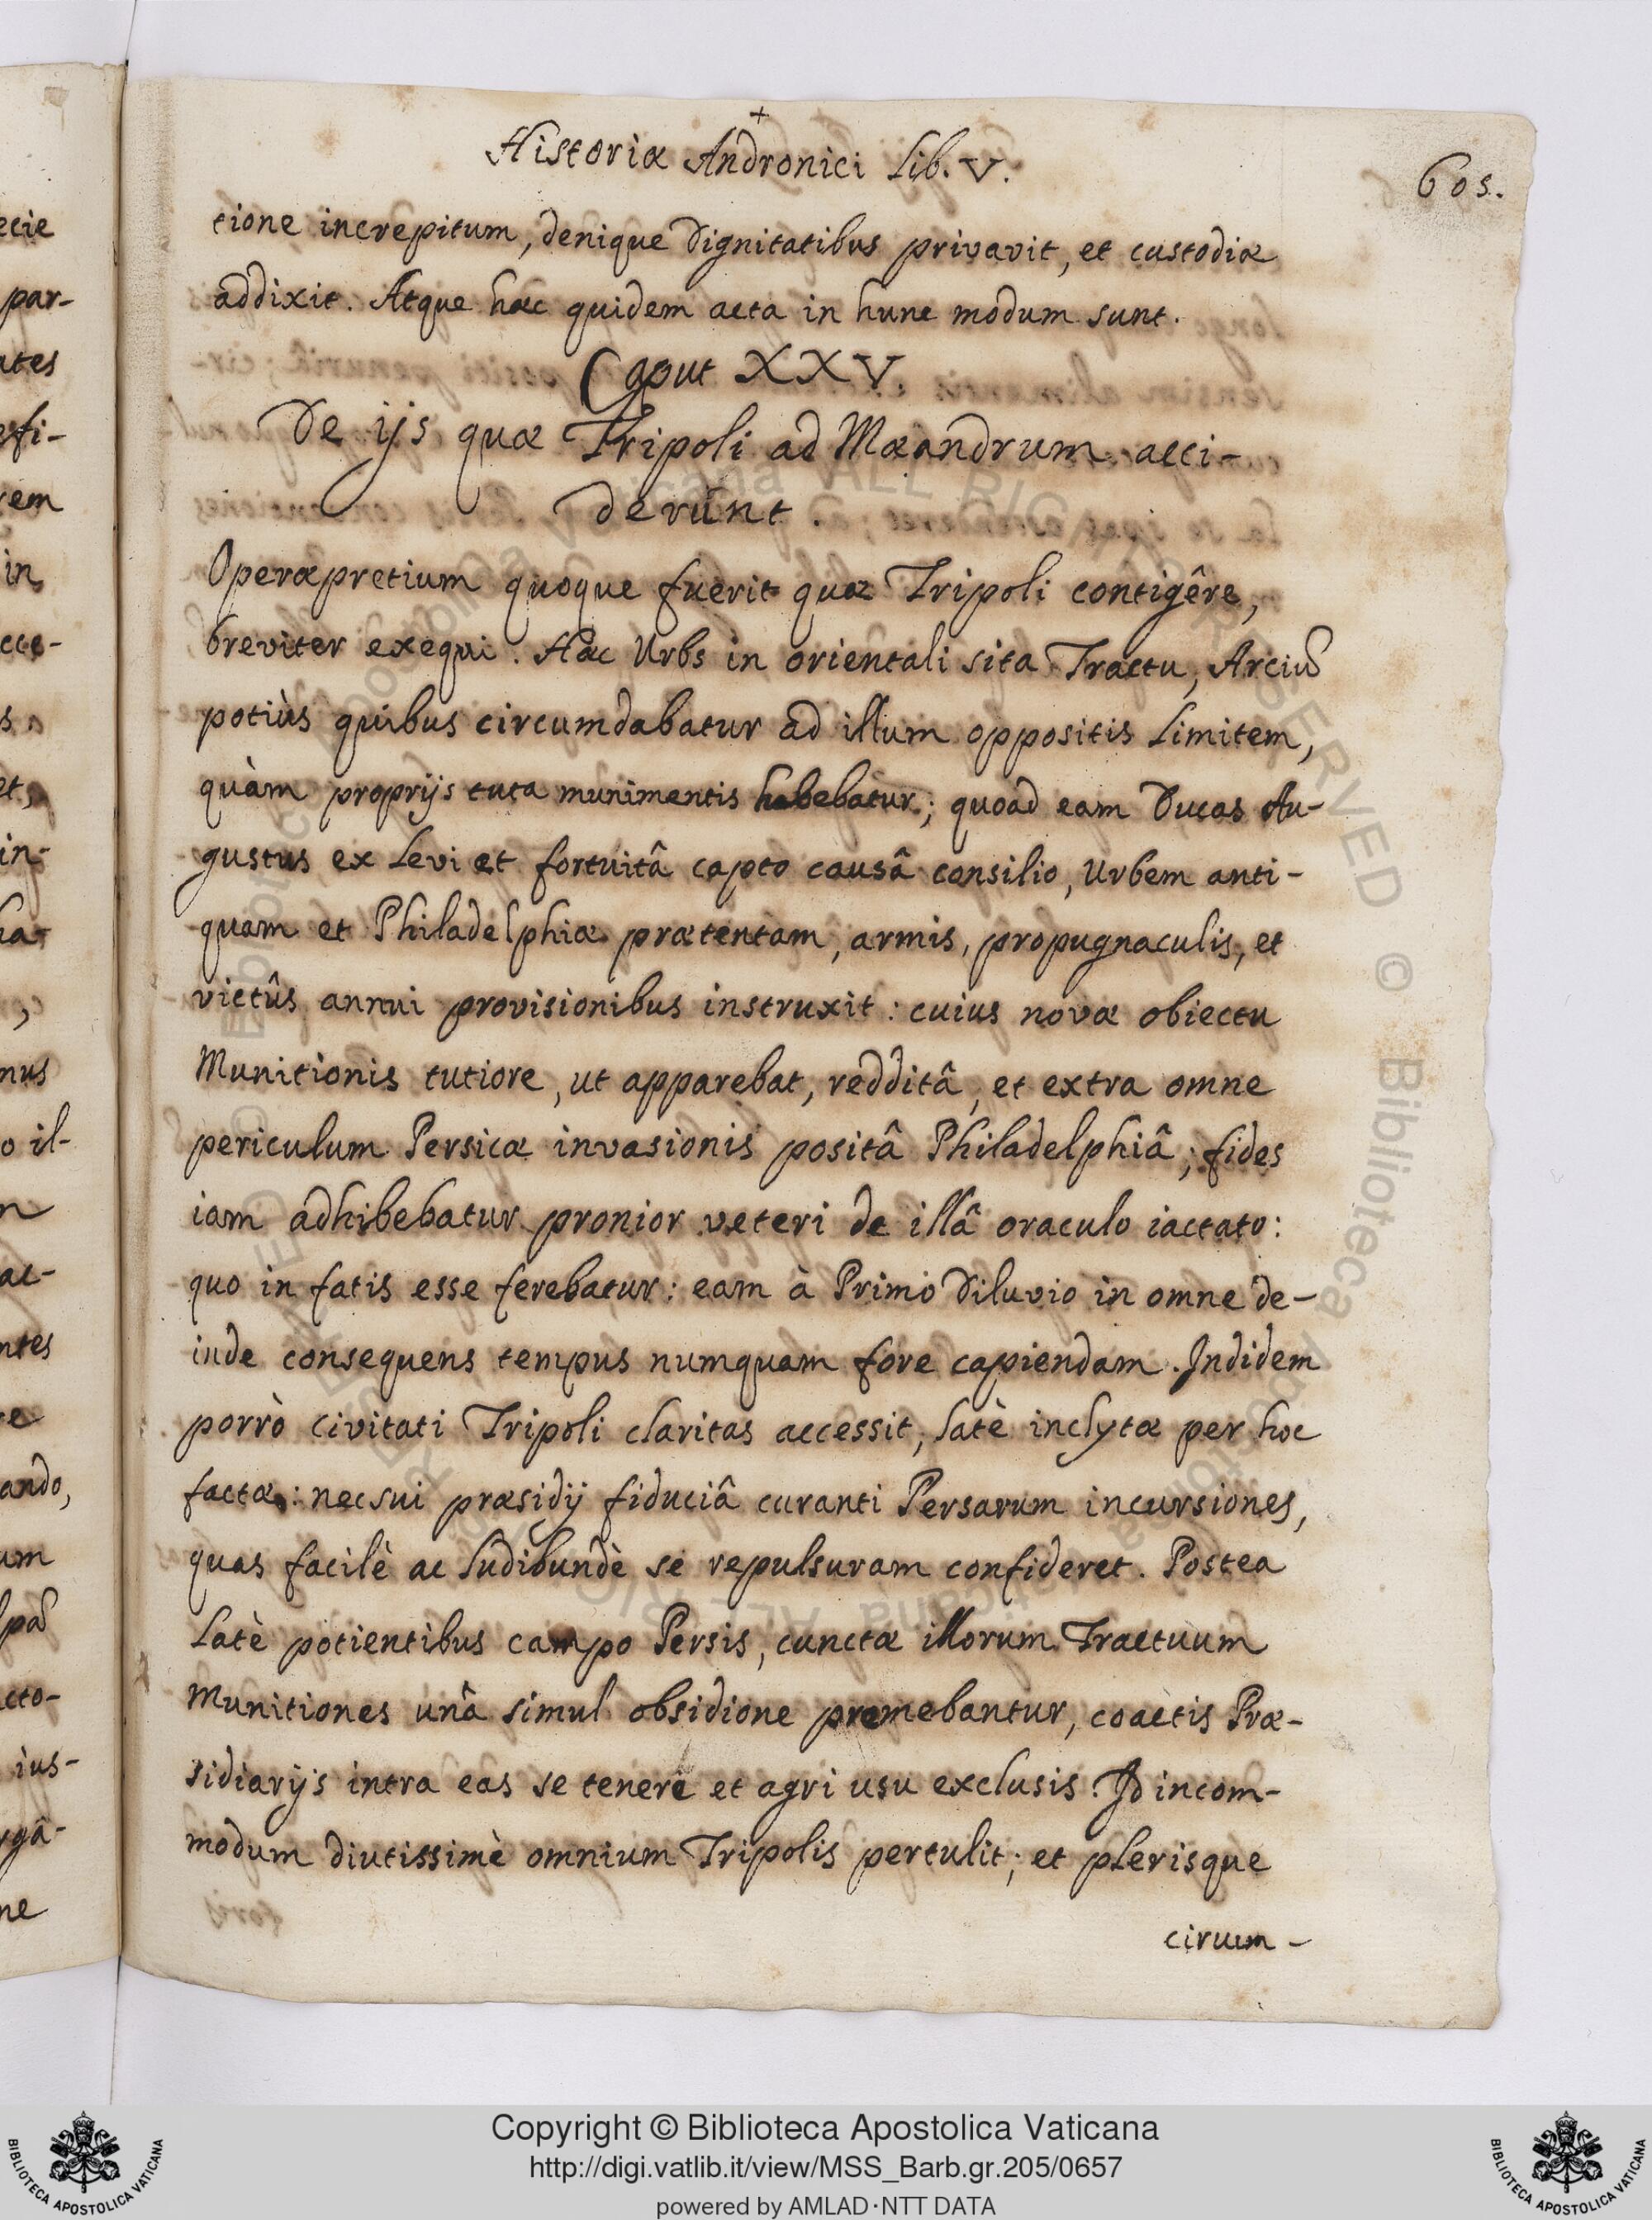 +
Historiæ Andronici Lib. V.
605.
tione increpitum, denique Dignitatibus privavit, et custodiæ
addixit. Atque hæc quidem acta in hunc modum sunt.
Caput XXV.
De ijs quæ Tripoli ad Mæandrum acci-
derunt.
Operæpretium quoque fuerit quæ Tripoli contigêre,
breviter exequi. Hæc Urbs in orientali sita Tractu, Arciũ
potiùs quibus circumdabatur ad illum oppositis Limitem,
quàm proprijs tuta munimentis habebatur; quoad eam Ducas Au-
gustus ex Levi et fortuitâ capto causâ consilio, Urbem anti-
quam et Philadelphiæ prætentam, armis, propugnaculis, et
victûs annui provisionibus instruxit: cuius novæ obiectu
Munitionis tutiore, ut apparebat, redditâ, et extra omne
periculum Persicæ invasionis positâ Philadelphiâ; fides
iam adhibebatur pronior veteri de illâ oraculo iactato:
quo in fatis esse ferebatur: eam à Primo Diluvio in omne de-
inde consequens tempus numquam fore capiendam. Indidem
porrò civitati Tripoli claritas accessit, latè inclytæ per hoc
factæ: nec sui præsidij fiduciâ curanti Persarum incursiones,
quas facilè ac ludibundè se repulsuram confideret. Postea
Latè potientibus campo Persis, cunctæ illorum Tractuum
Munitiones unâ simul obsidione premebantur, coactis Præ-
sidiarijs intra eas se tenere et agri usu exclusis. Id incom-
modum diutissimè omnium Tripolis pertulit; et plerisque
cirum-
ecie
par-
ates
esfi-
rem
in
cce-
s
et,
in-
ha-
,
nus
o il-
n
ac-
ntes
re
ando,
um
cto-
ius-
rgâ-
ne
Copyright © Biblioteca Apostolica Vaticana
http://digi.vatlib.it/view/MSS_Barb.gr.205/0657
powered by AMLAD·NTT DATA
BIBLIOTECA APOSTOLICA VATICANA
BIBLIOTECA APOSTOLICA VATICANA